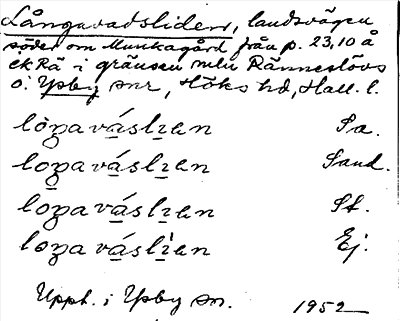 Långavadsliden, landsvägen
söder om Munkagård från p. 23,10 å
ekKä i gränsen mln Ränneslövs
o. Ysby snr, Höks hd, Hall. l.
lòŋaváslıɛn Pa.
loŋaváslıɛn Sand.
loŋaváslıɛn St.
loŋaváslıɛn Ej.
Uppt. i Ysby sn. 1952